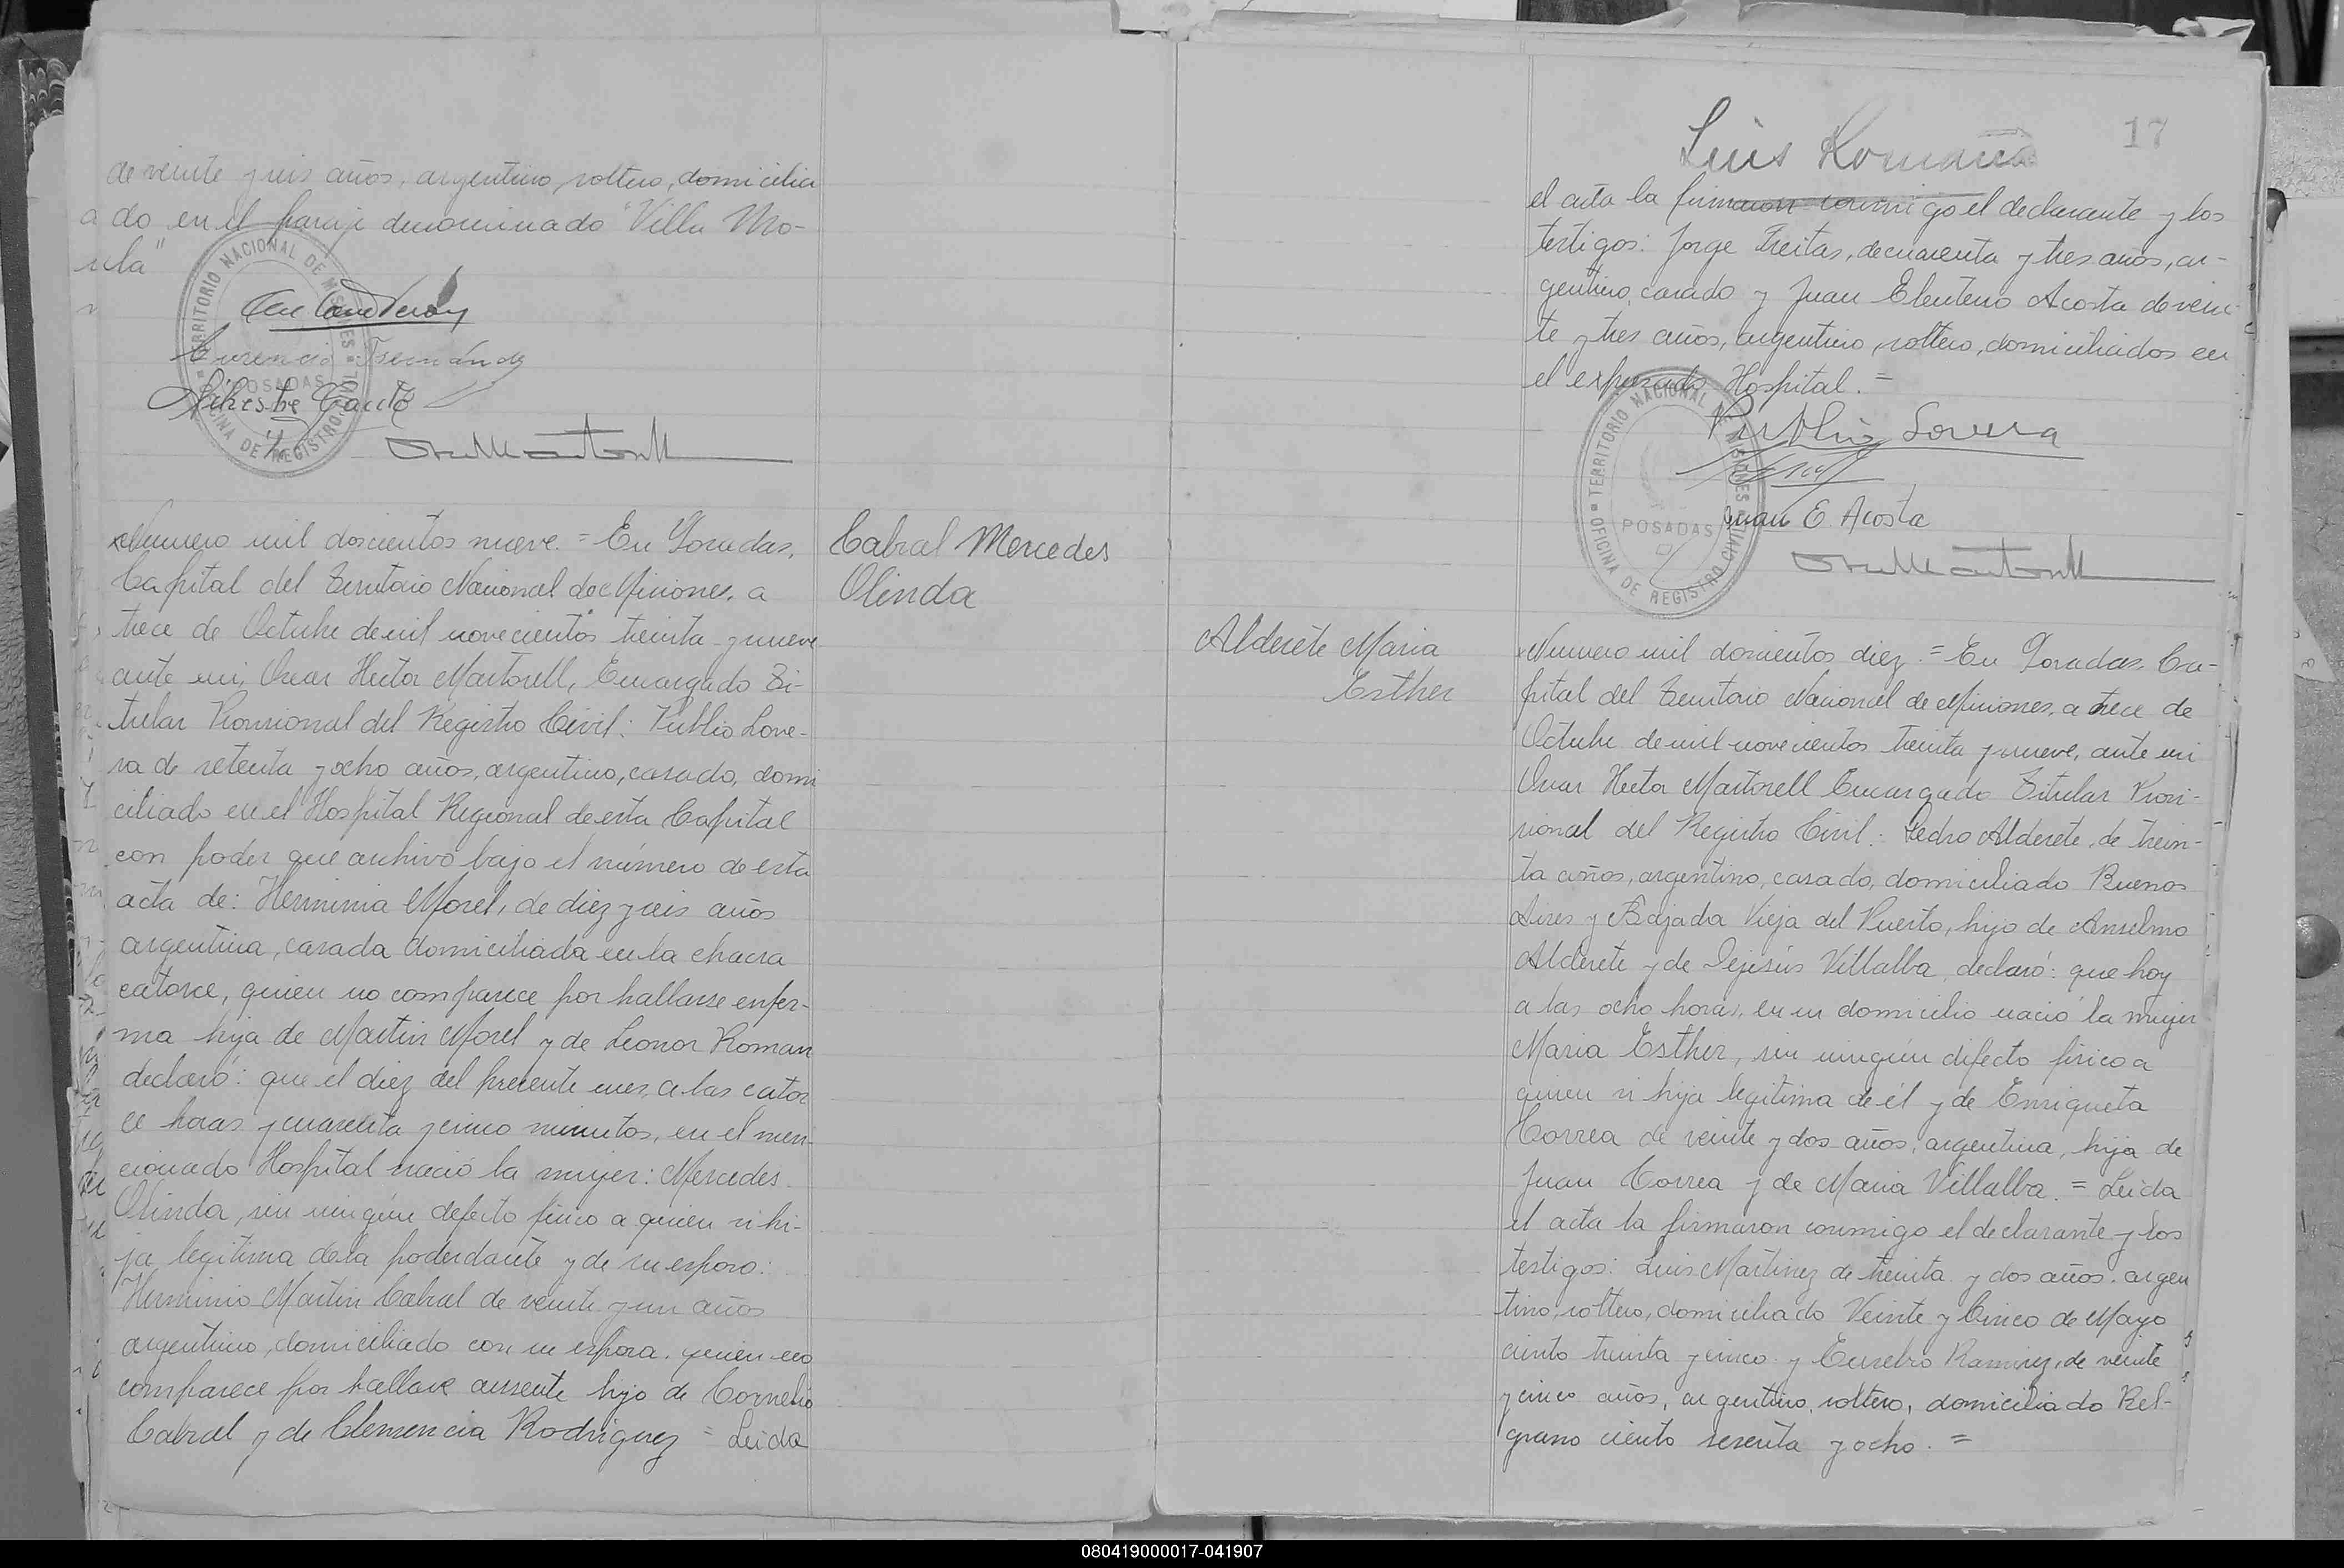 de veinte y seis años, argentino, soltero, domicilia
do en el paraje denominado "Villa Mo-
sela"
Silvestre
TERRITORIO NACIONAL DE MISIONES
POSADAS
OFICINA DE REGISTRO CIVIL
Numero mil doscientos nueve. = En Posadas,
Capital del Territorio Nacional de Misiones, a
trece de Octubre de mil novecientos treinta y nueve
ante mi, Oscar Hector Martorell, Encargado Ti-
tular Provisional del Registro Civil: Publio Love-
ra de setenta y ocho años, argentino, casado, domi
ciliado en el Hospital Regional de esta Capital
con poder que archivo bajo el número de esta
acta de: Herminia Morel, de diez y seis años
argentina, casada domiciliada en la chacra
catorce, quien no comparece por hallarse enfer-
ma hija de Martin Morel y de Leonor Roman
declaró: que el diez del presente mes, a las cator
ce horas y cuarenta y cinco minutos, en el men-
cionado Hospital nació la mujer: Mercedes
Olinda, sin ningún defecto fisico a quien vi hi-
ja legitima de la poderdante y de su esposo:
Herminio Martin Cabral de veinte y un años
argentino, domiciliado con su esposa, quien no
comparece por hallarse ausente hijo de Cornelio
Cabral y de Clemencia Rodriguez = Leida
Cabral Mercedes
Olinda
17
Luis
el acta la firmaron conmigo el declarante y los
testigos: Jorge Freitas, de cuarenta y tres años, ar-
gentino, casado y Juan Eleuterio Acosta de vein-
te y tres años, argentino, soltero, domiciliados en
el expresado Hospital. =
Publio Lovera
Juan E. Acosta
TERRITORIO NACIONAL DE MISIONES
POSADAS
OFICINA DE REGISTRO CIVIL
Alderete Maria
Esther
Numero mil doscientos diez. = En Posadas Ca-
pital del Territorio Nacional de Misiones, a trece de
Octubre de mil novecientos treinta y nueve, ante mi
Oscar Hector Martorell Encargado Titular Provi-
sional del Registro Civil: Pedro Alderete, de trein-
ta años, argentino, casado, domiciliado Buenos
Aires y Bajada Vieja del Puerto, hijo de Anselmo
Alderete y de Dejesús Villalba, declaró: que hoy
a las ocho horas, en su domicilio nació la mujer
Maria Esther, sin ningún defecto fisico a
quien vi hija legitima de él y de Enriqueta
Correa de veinte y dos años, argentina, hija de
Juan Correa y de Maria Villalba. = Leida
el acta la firmaron conmigo el declarante y los
testigos: Luis Martinez de treinta y dos años, argen
tino, soltero, domiciliado Veinte y Cinco de Mayo
ciento treinta y cinco y Eusebio Ramirez, de veinte
y cinco años, argentino, soltero, domiciliado Bel-
grano ciento sesenta y ocho. =
080419000017-041907